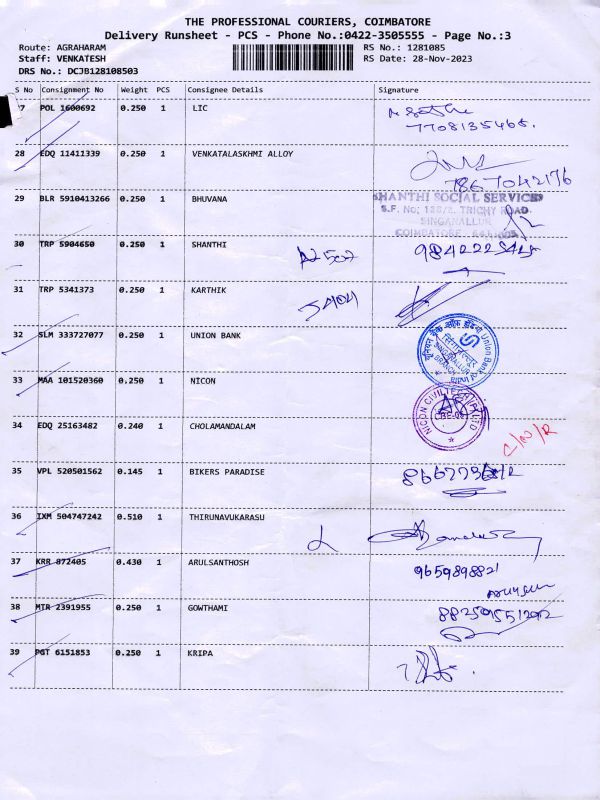 THE PROFESSIONAL COURIERS, COIMBATORE
Delivery Runsheet - PCS - Phone No.:0422-3505555 - Page No.:3
Route: AGRAHARAM RS No.: 1281085
Staff: VENKATESH RS Date: 28-Nov-2023
DRS No.: DCJB128108503
S No Consignment No Weight PCS Consignee Details Signature
7 POL 1600692 0.250 1 LIC
7708135468.
28 EDQ 11411339 0.250 1 VENKATALASKHMI ALLOY
7867042176
29 BLR 5910413266 0.250 1 BHUVANA
SHANTHI SOCIAL SERVICES
TRICHY ROAD.
SINGANALLUR
COIMBATORE
30 TRP 5904650 0.250 1 SHANTHI
31 TRP 5341373 0.250 1 KARTHIK
32 SLM 333727077 0.250 1 UNION BANK
यूनियन बैंक ऑफ इंडिया Union Bank of India
सिंगानल्लूर
SINGANALLUR
BRANCH
33 MAA 101520360 0.250 1 NICON
NICON CIVILTECH (P) LTD
34 EDQ 25163482 0.240 1 CHOLAMANDALAM
C/N/R
35 VPL 520501562 0.145 1 BIKERS PARADISE
36 IXM 504747242 0.510 1 THIRUNAVUKARASU
37 KRR 872405 0.430 1 ARULSANTHOSH
9659898821
38 MTR 2391955 0.250 1 GOWTHAMI
39 PGT 6151853 0.250 1 KRIPA